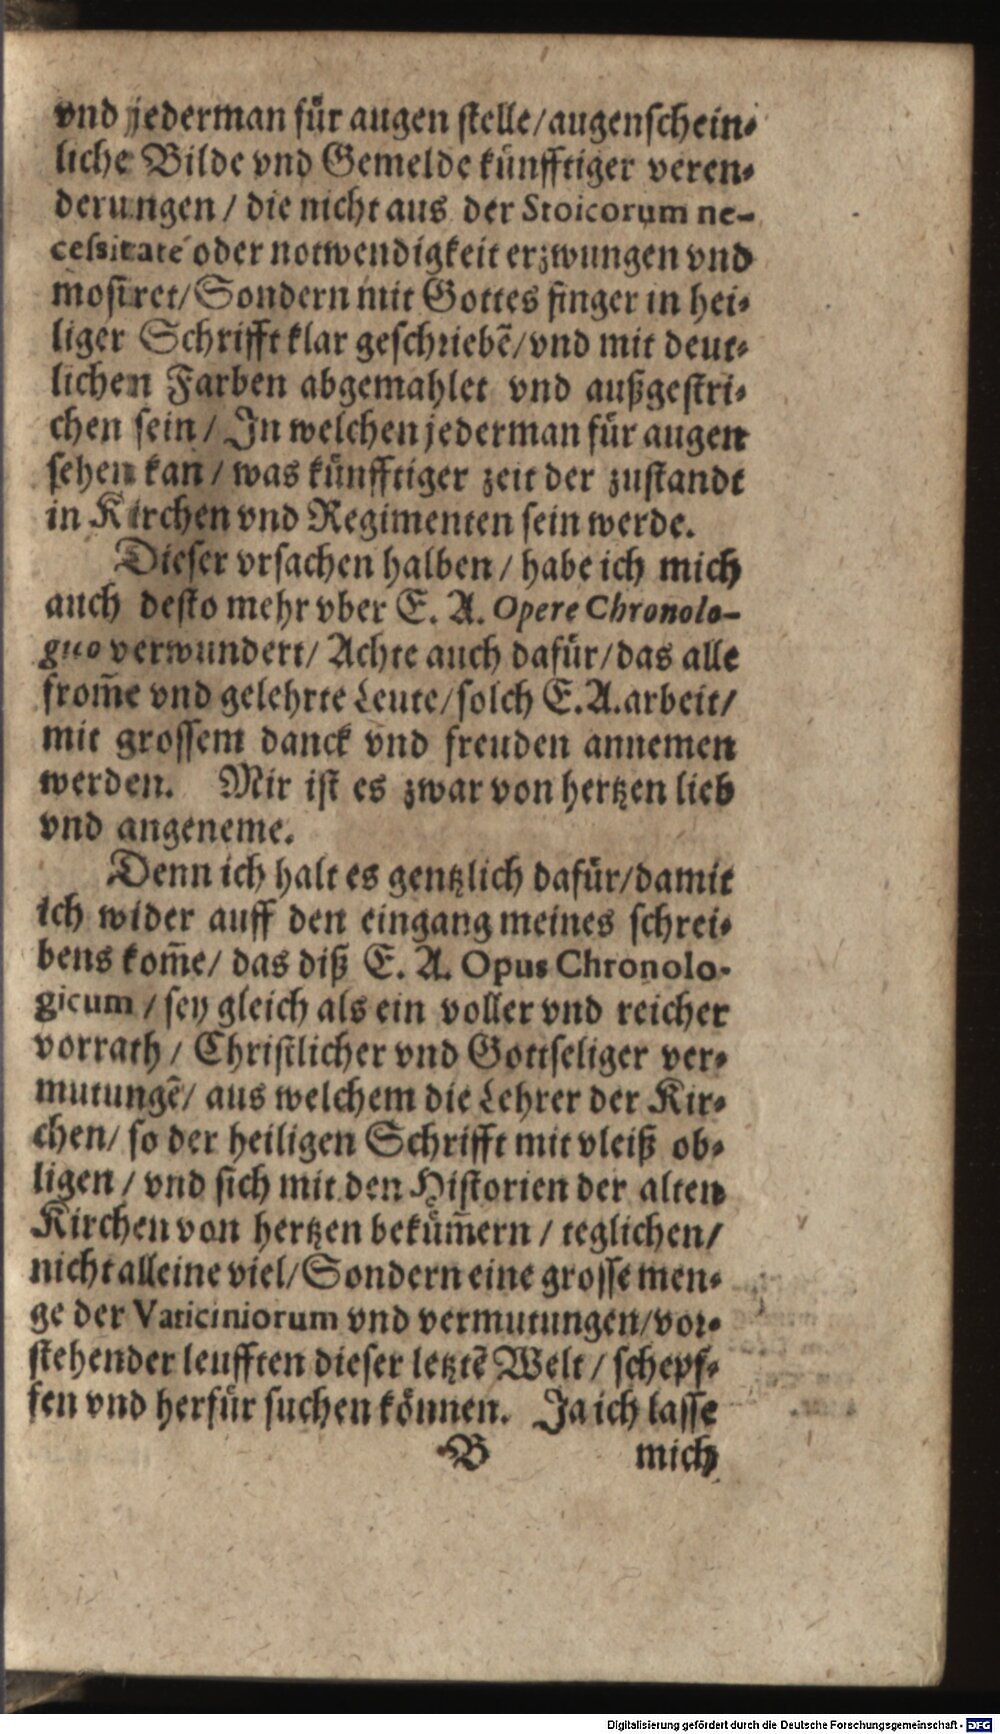 vnd jederman für augen stelle/augenschein-
liche Bilde vnd Gemelde künfftiger veren-
derungen / die nicht aus der Stoicorum ne-
cessitate oder notwendigkeit erzwungen vnd
mostret/Sondern mit Gottes finger in hei-
liger Schrifft klar geschriebẽ/vnd mit deut-
lichen Farben abgemahlet vnd außgestri-
chen sein / In welchen jederman für augen
sehen kan / was künfftiger zeit der zustandt
in Kirchen vnd Regimenten sein werde.
Dieser vrsachen halben / habe ich mich
auch desto mehr vber E. A. Opere Chronolo-
gico verwundert/ Achte auch dafür/das alle
from̃e vnd gelehrte Leute/solch E.A.arbeit/
mit grossem danck vnd freuden annemen
werden. Mir ist es zwar von hertzen lieb
vnd angeneme.
Denn ich halt es gentzlich dafür/damit
ich wider auff den eingang meines schrei-
bens kom̃e/ das diß E. A. Opus Chronolo-
gicum / sey gleich als ein voller vnd reicher
vorrath / Christlicher vnd Gottseliger ver-
mutungẽ/ aus welchem die Lehrer der Kir-
chen/ so der heiligen Schrifft mit vleiß ob-
ligen / vnd sich mit den Historien der alten
Kirchen von hertzen beküm̃ern / teglichen/
nicht alleine viel/Sondern eine grosse men-
ge der Vaticiniorum vnd vermutungen/vor-
stehender leufften dieser letztẽ Welt / schepf-
fen vnd herfür suchen können. Ja ich lasse
B mich
Digitalisierung gefördert durch die Deutsche Forschungsgemeinschaft - DFG